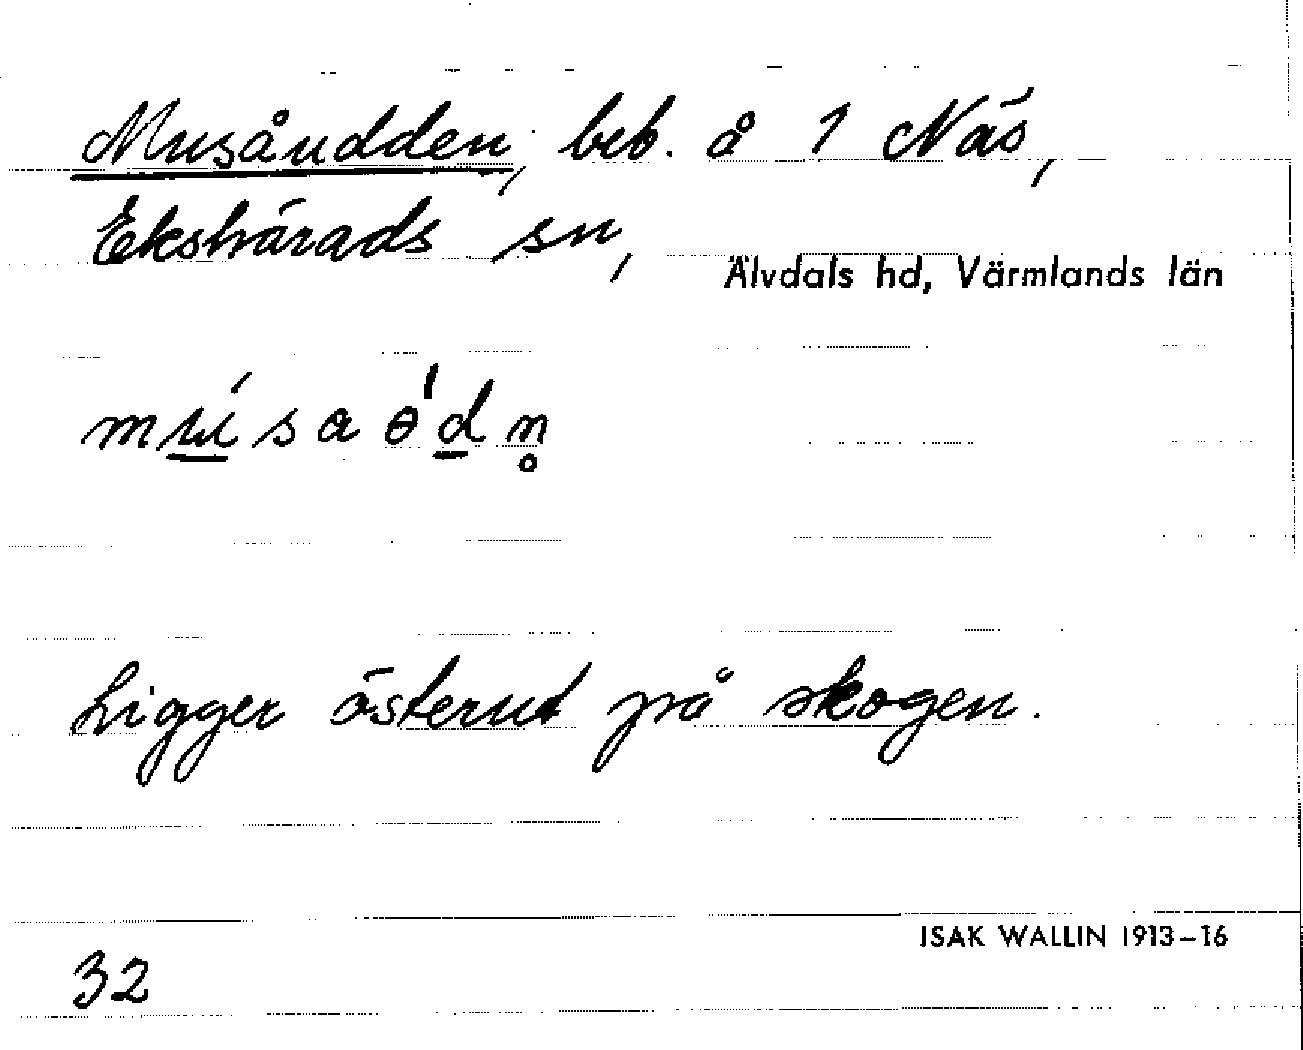 Musåudden, beb. å 1 Näs,
Ekshärads sn,
Älvdals hd, Värmlands län
mú̲saɵ'd̲n̥
Ligger österut på skogen.
ISAK WALLIN 1913–16
32